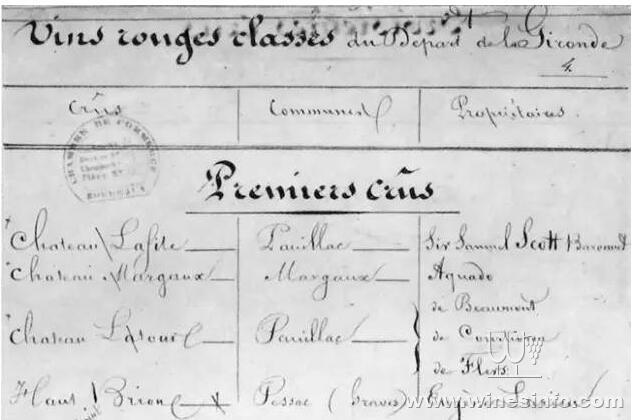 Vins rouges classés du Départ. de la Gironde
4.
Crûs Communes Propriétaires
CHAMBRE DE COMMERCE
BORDEAUX
Premiers crûs
Chateau Lafite Pauillac Sir Samuel Scott Baronnet
Chateau Margaux Margaux Aguado
de Beaumont
Chateau Latour Pauillac de Courtivron
de Flers
Haut Brion Pessac (Graves) Eugène Larrieu
www.winesinfo.com